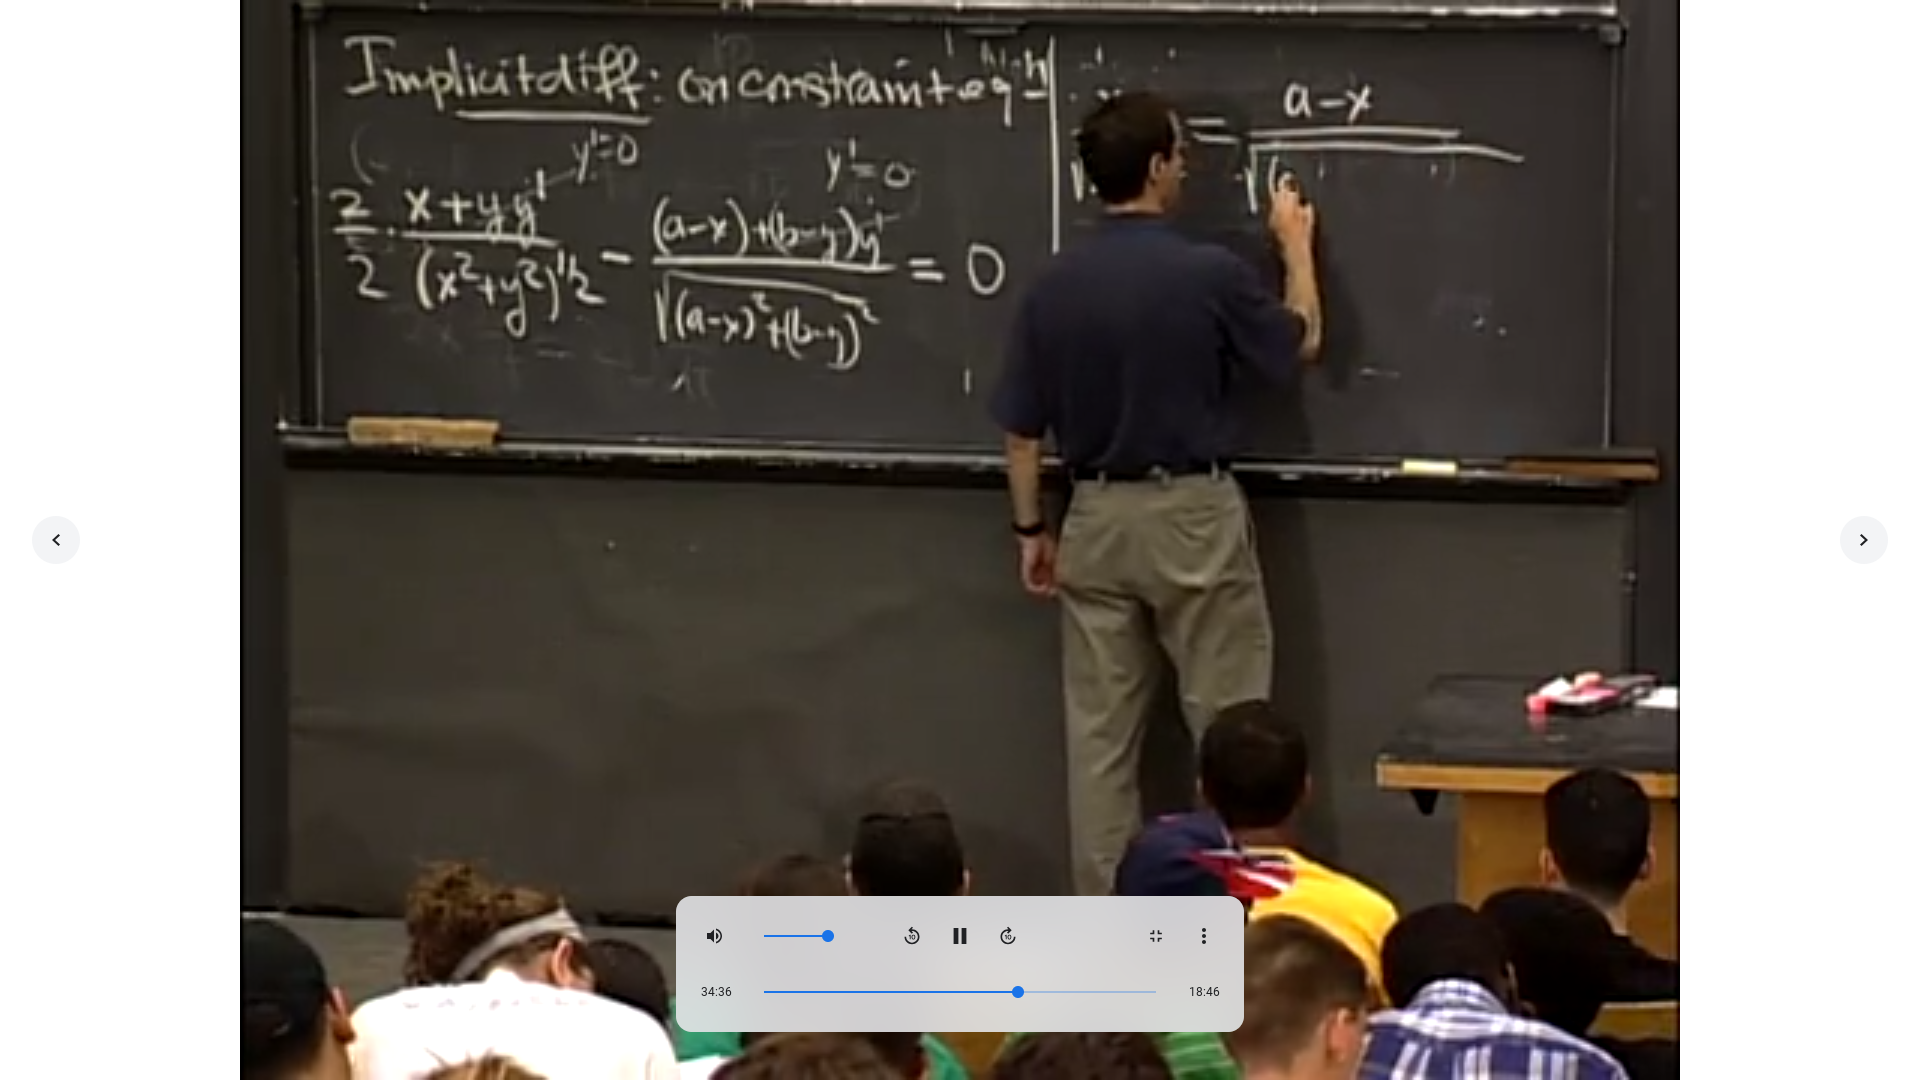 Implicit diff: on constraint eqn
y'=0
y'=0
2/2 · x+yy'/(x²+y²)^1/2 - (a-x)+(b-y)y'/√(a-x)²+(b-y)² = 0
= a-x
√(
34:36
18:46